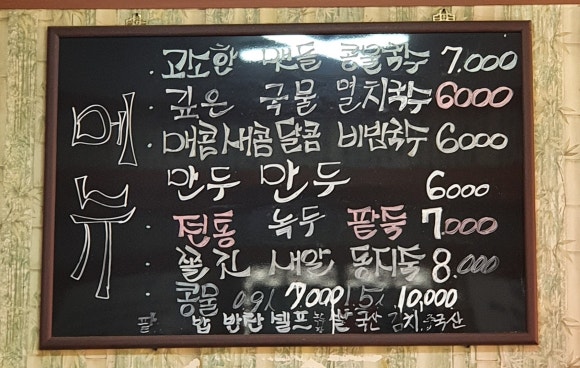 메뉴
고소한 맷돌 콩물국수 7.000
깊은 국물 멸치국수 6000
매콤새콤달콤 비빔국수 6000
만두 만두 6000
전통 녹두 팥죽 7.000
쫄긴 새알 동지죽 8.000
콩물 0.9l 7000 1.5l 10,000
밥 반찬 셀프 쌀 국산 김치 중국산